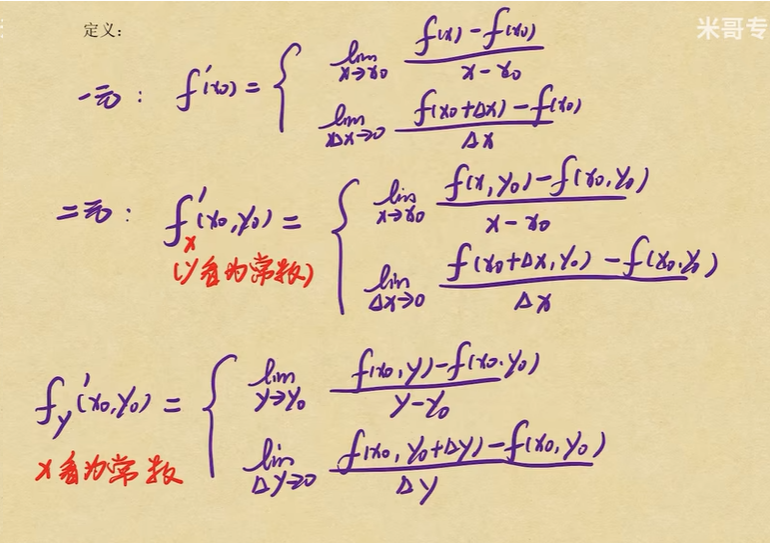 定义：
米哥专
一元： f'(x₀) = { lim x→x₀ (f(x) - f(x₀)) / (x - x₀)
lim Δx→0 (f(x₀+Δx) - f(x₀)) / Δx
二元： f'x(x₀,y₀) = { lim x→x₀ (f(x,y₀) - f(x₀,y₀)) / (x - x₀)
(y看为常数)
lim Δx→0 (f(x₀+Δx,y₀) - f(x₀,y₀)) / Δx
f'y(x₀,y₀) = { lim y→y₀ (f(x₀,y) - f(x₀,y₀)) / (y - y₀)
x看为常数
lim Δy→0 (f(x₀,y₀+Δy) - f(x₀,y₀)) / Δy